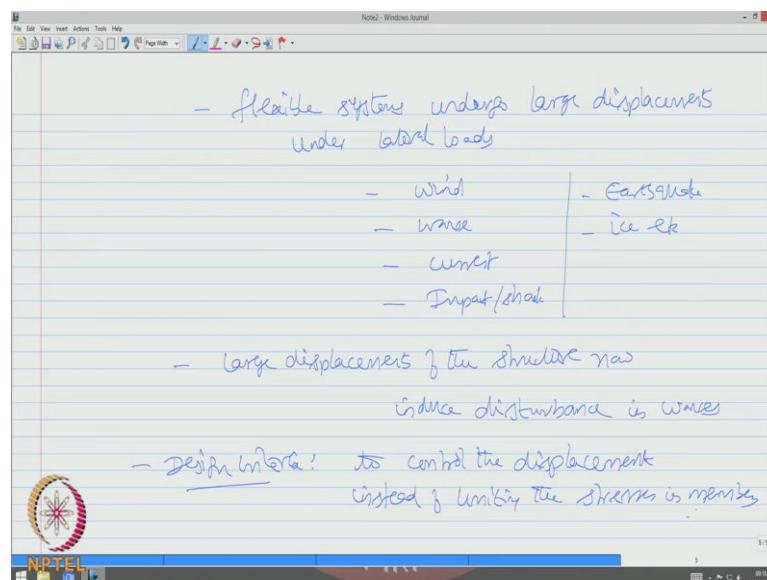 Note2 - Windows Journal
File Edit View Insert Actions Tools Help
Page Width
- flexible systems undergo large displacements
under lateral loads
- wind
- wave
- current
- Impact/shock
- Earthquake
- ice etc
- large displacements of the structure now
induce disturbance in waves
- Design criteria: to control the displacement
instead of limiting the stresses in members
NPTEL
5